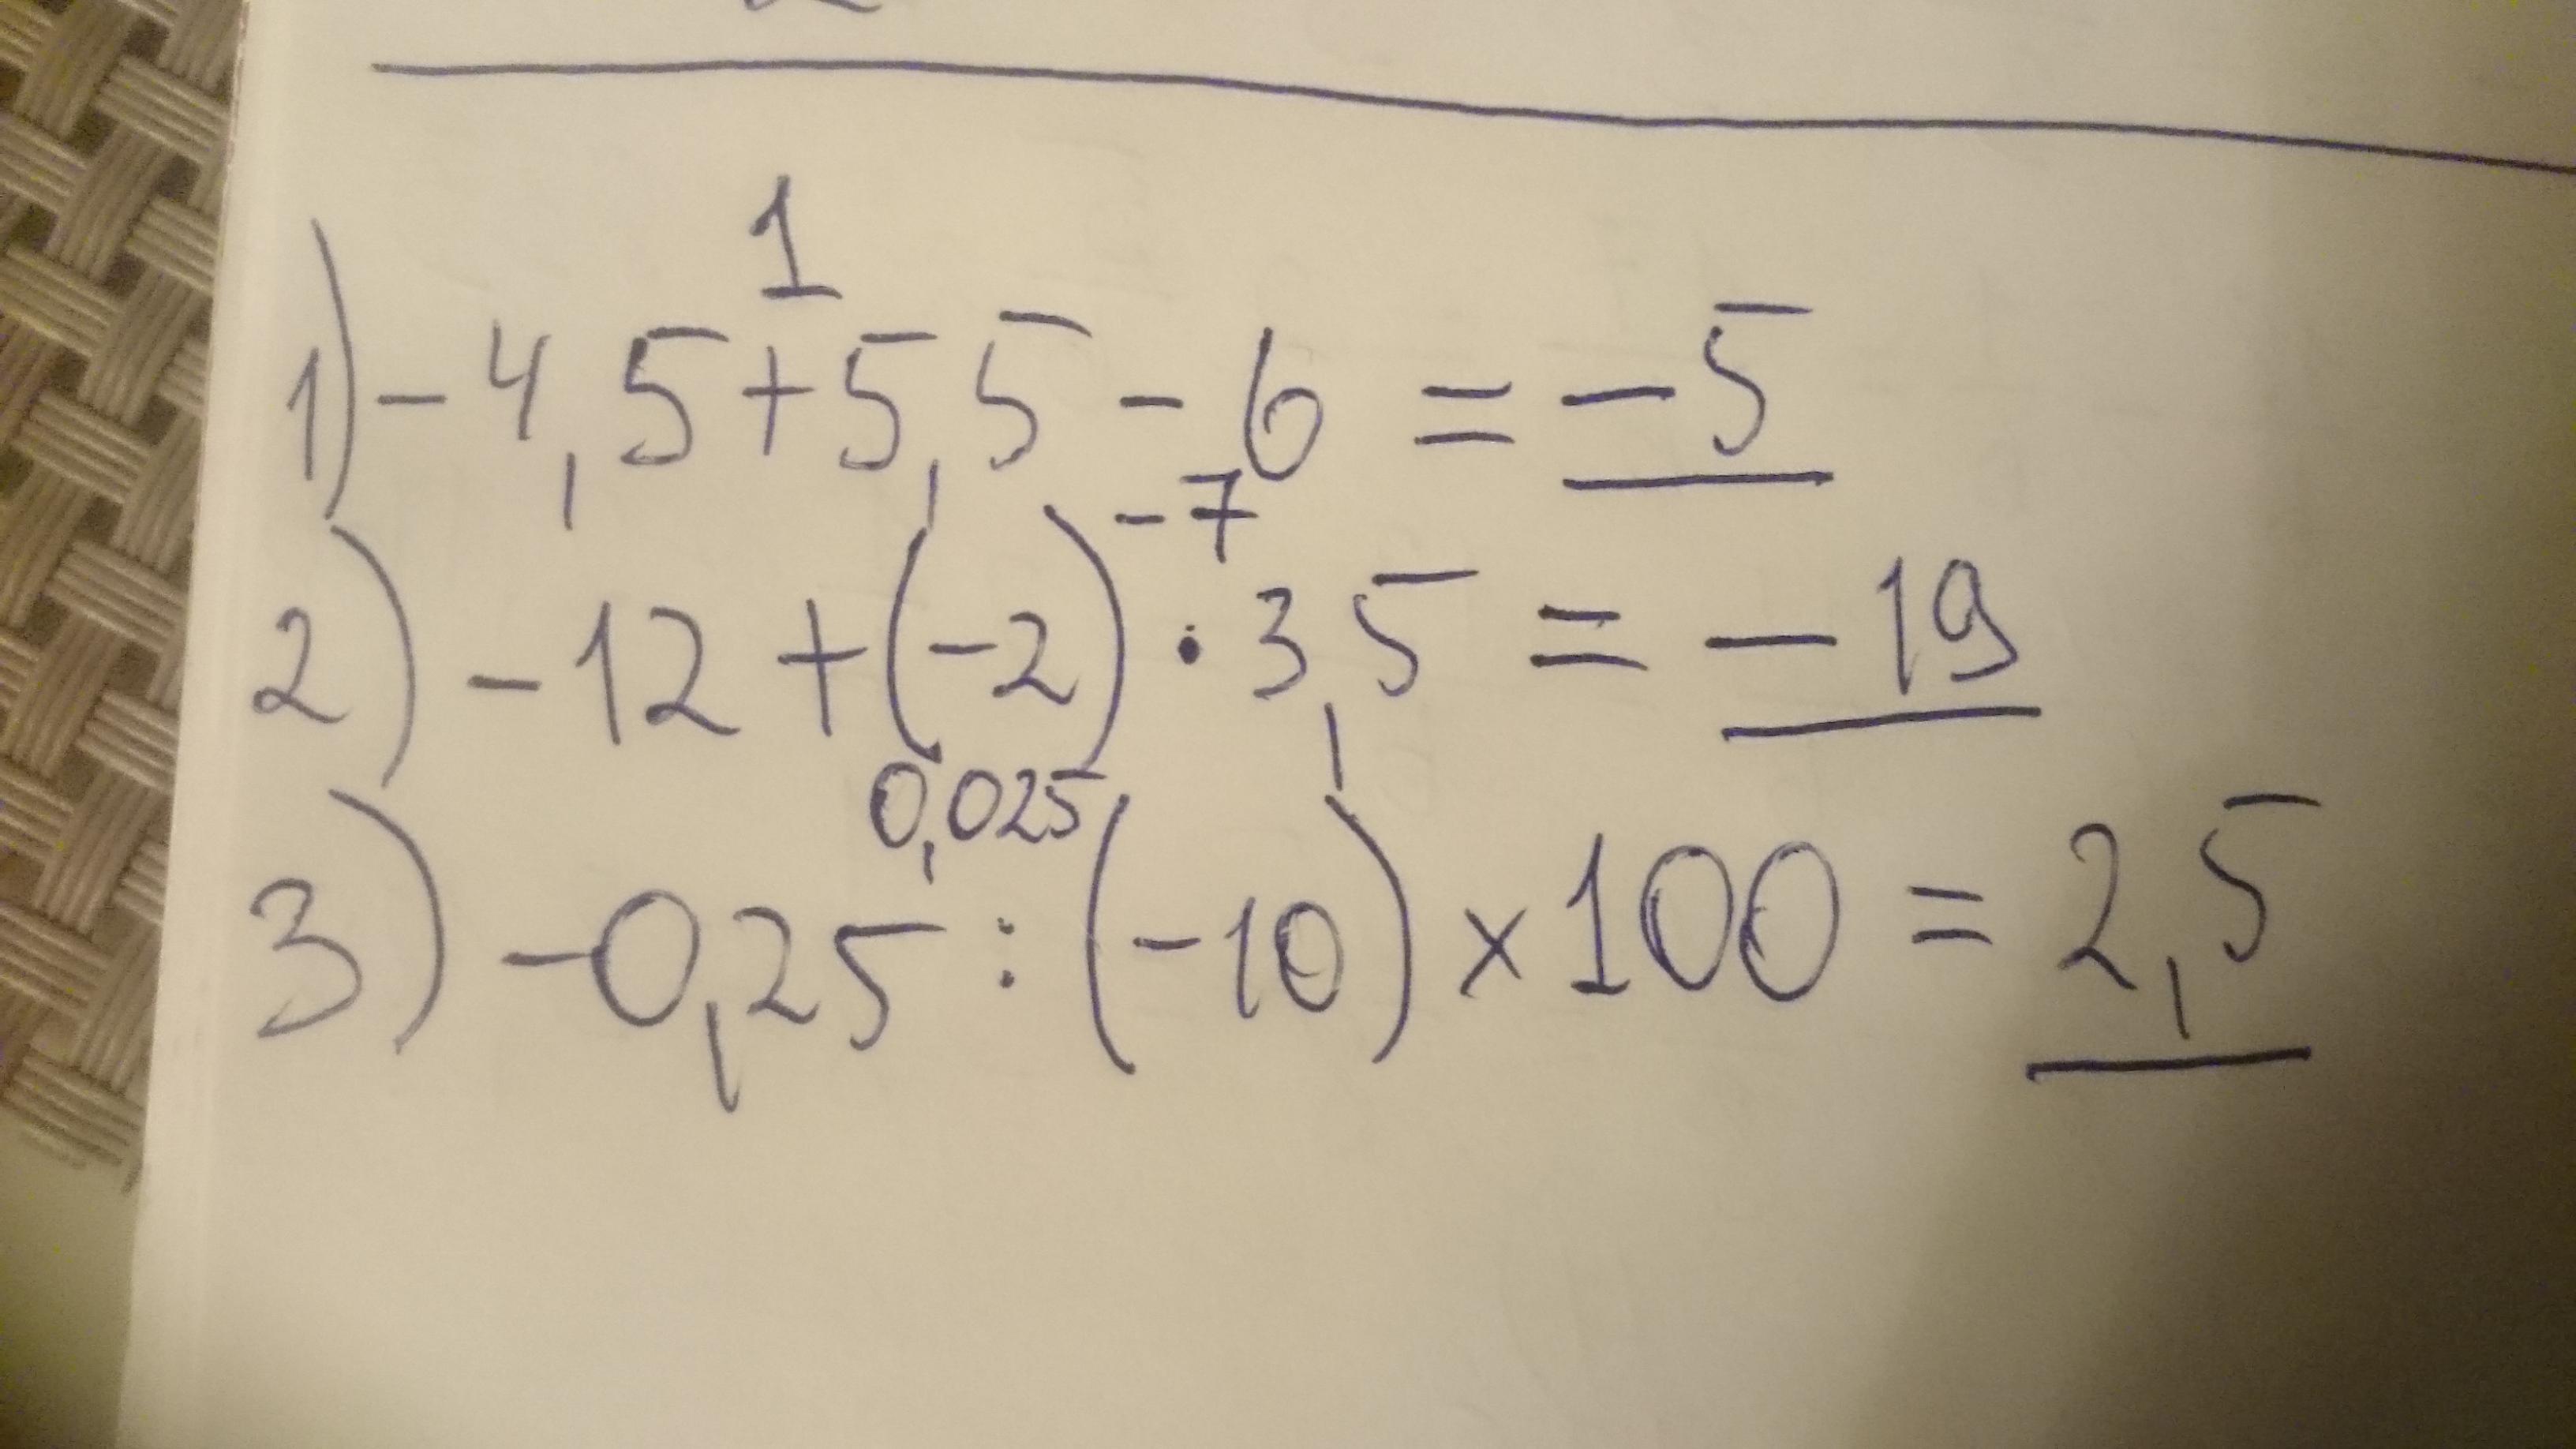 1
1) -4,5+5,5 - 6 = -5
-7
2) -12 + (-2) · 3,5 = -19
0,025
3) -0,25 : (-10) × 100 = 2,5